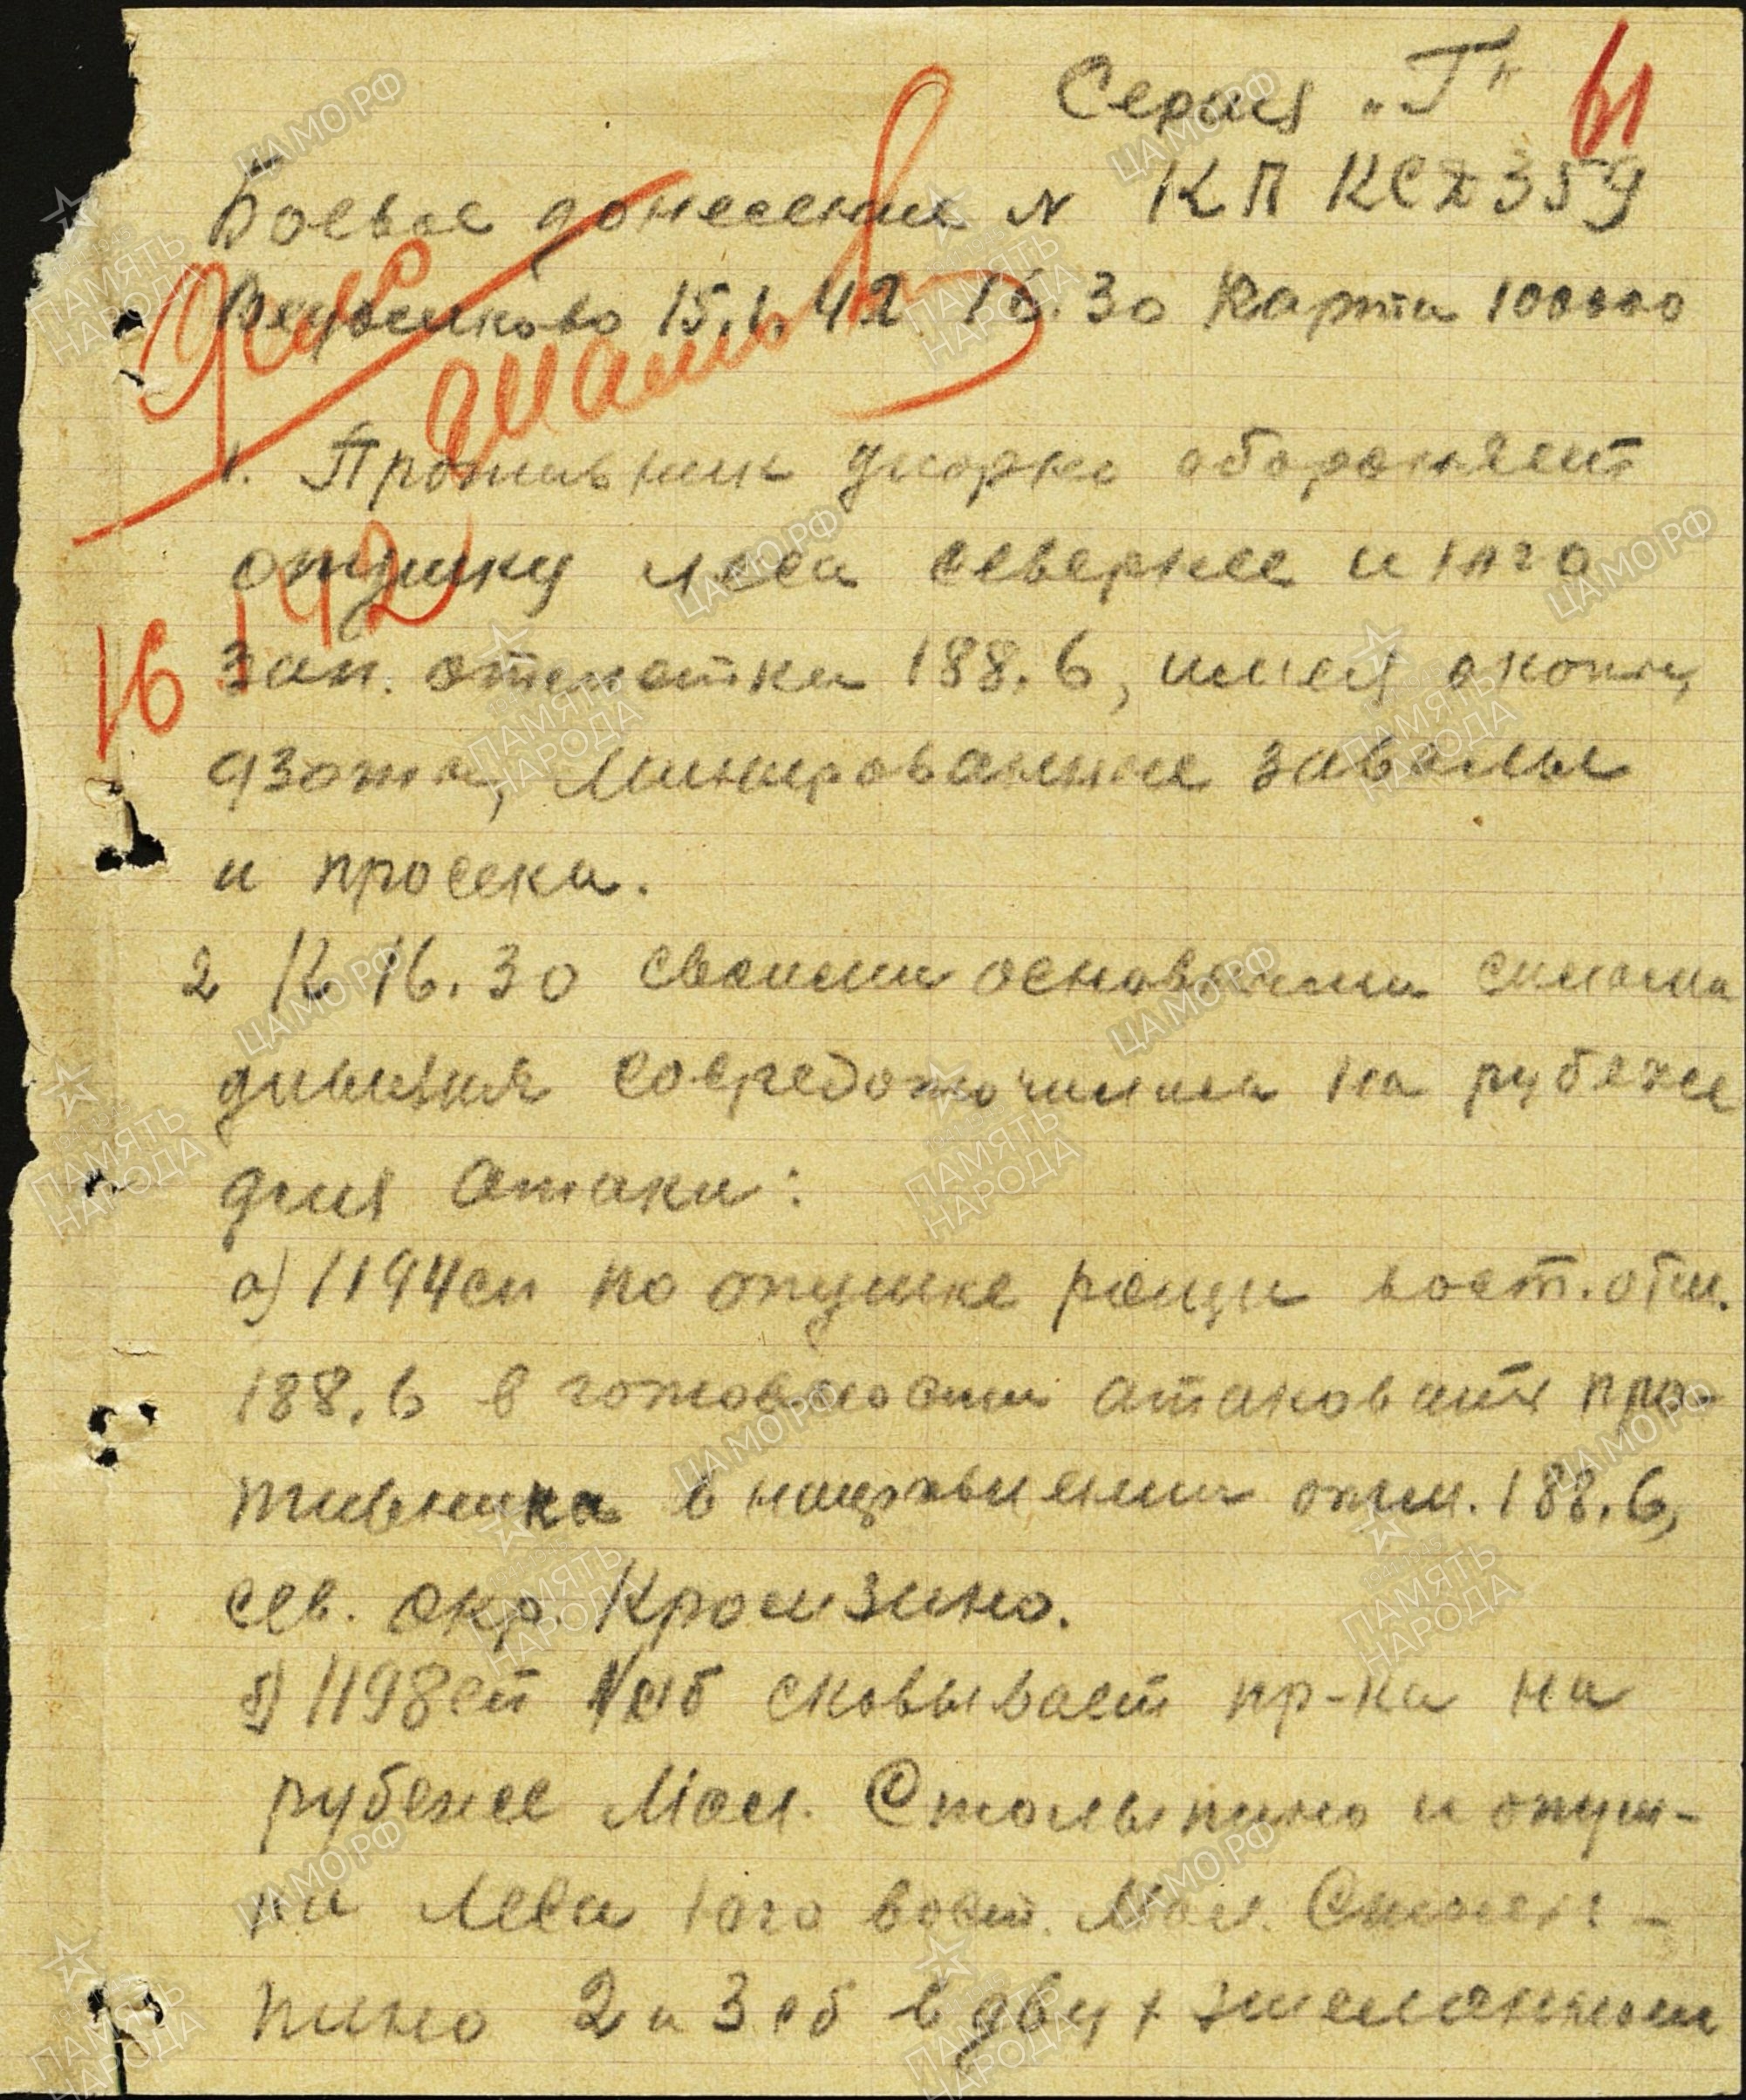 Серия „Г“ 61
Боевое донесение № КП КСД 359
15.1.42 16.30 Карта 100000
1. Противник упорно обороняет
опушку леса севернее и юго
зап. отметки 188.6, имея окопы,
дзоты, минированные завалы
и просеки.
16 1 42
2 К 16.30 своими основными силами
дивизия сосредоточилась на рубеже
для атаки:
а) 1194сп по опушке рощи вост. отм.
188.6 в готовности атаковать про-
тивника в направлении отм. 188.6,
сев. окр. Кромзино.
б) 1198сп 1/сб сковывает пр-ка на
рубеже Мал. Столыпино и опуш-
ка леса юго вост. Мал. Столы-
пино 2 и 3 сб в двух эшелонном
ЦАМО.РФ
ПАМЯТЬ
НАРОДА